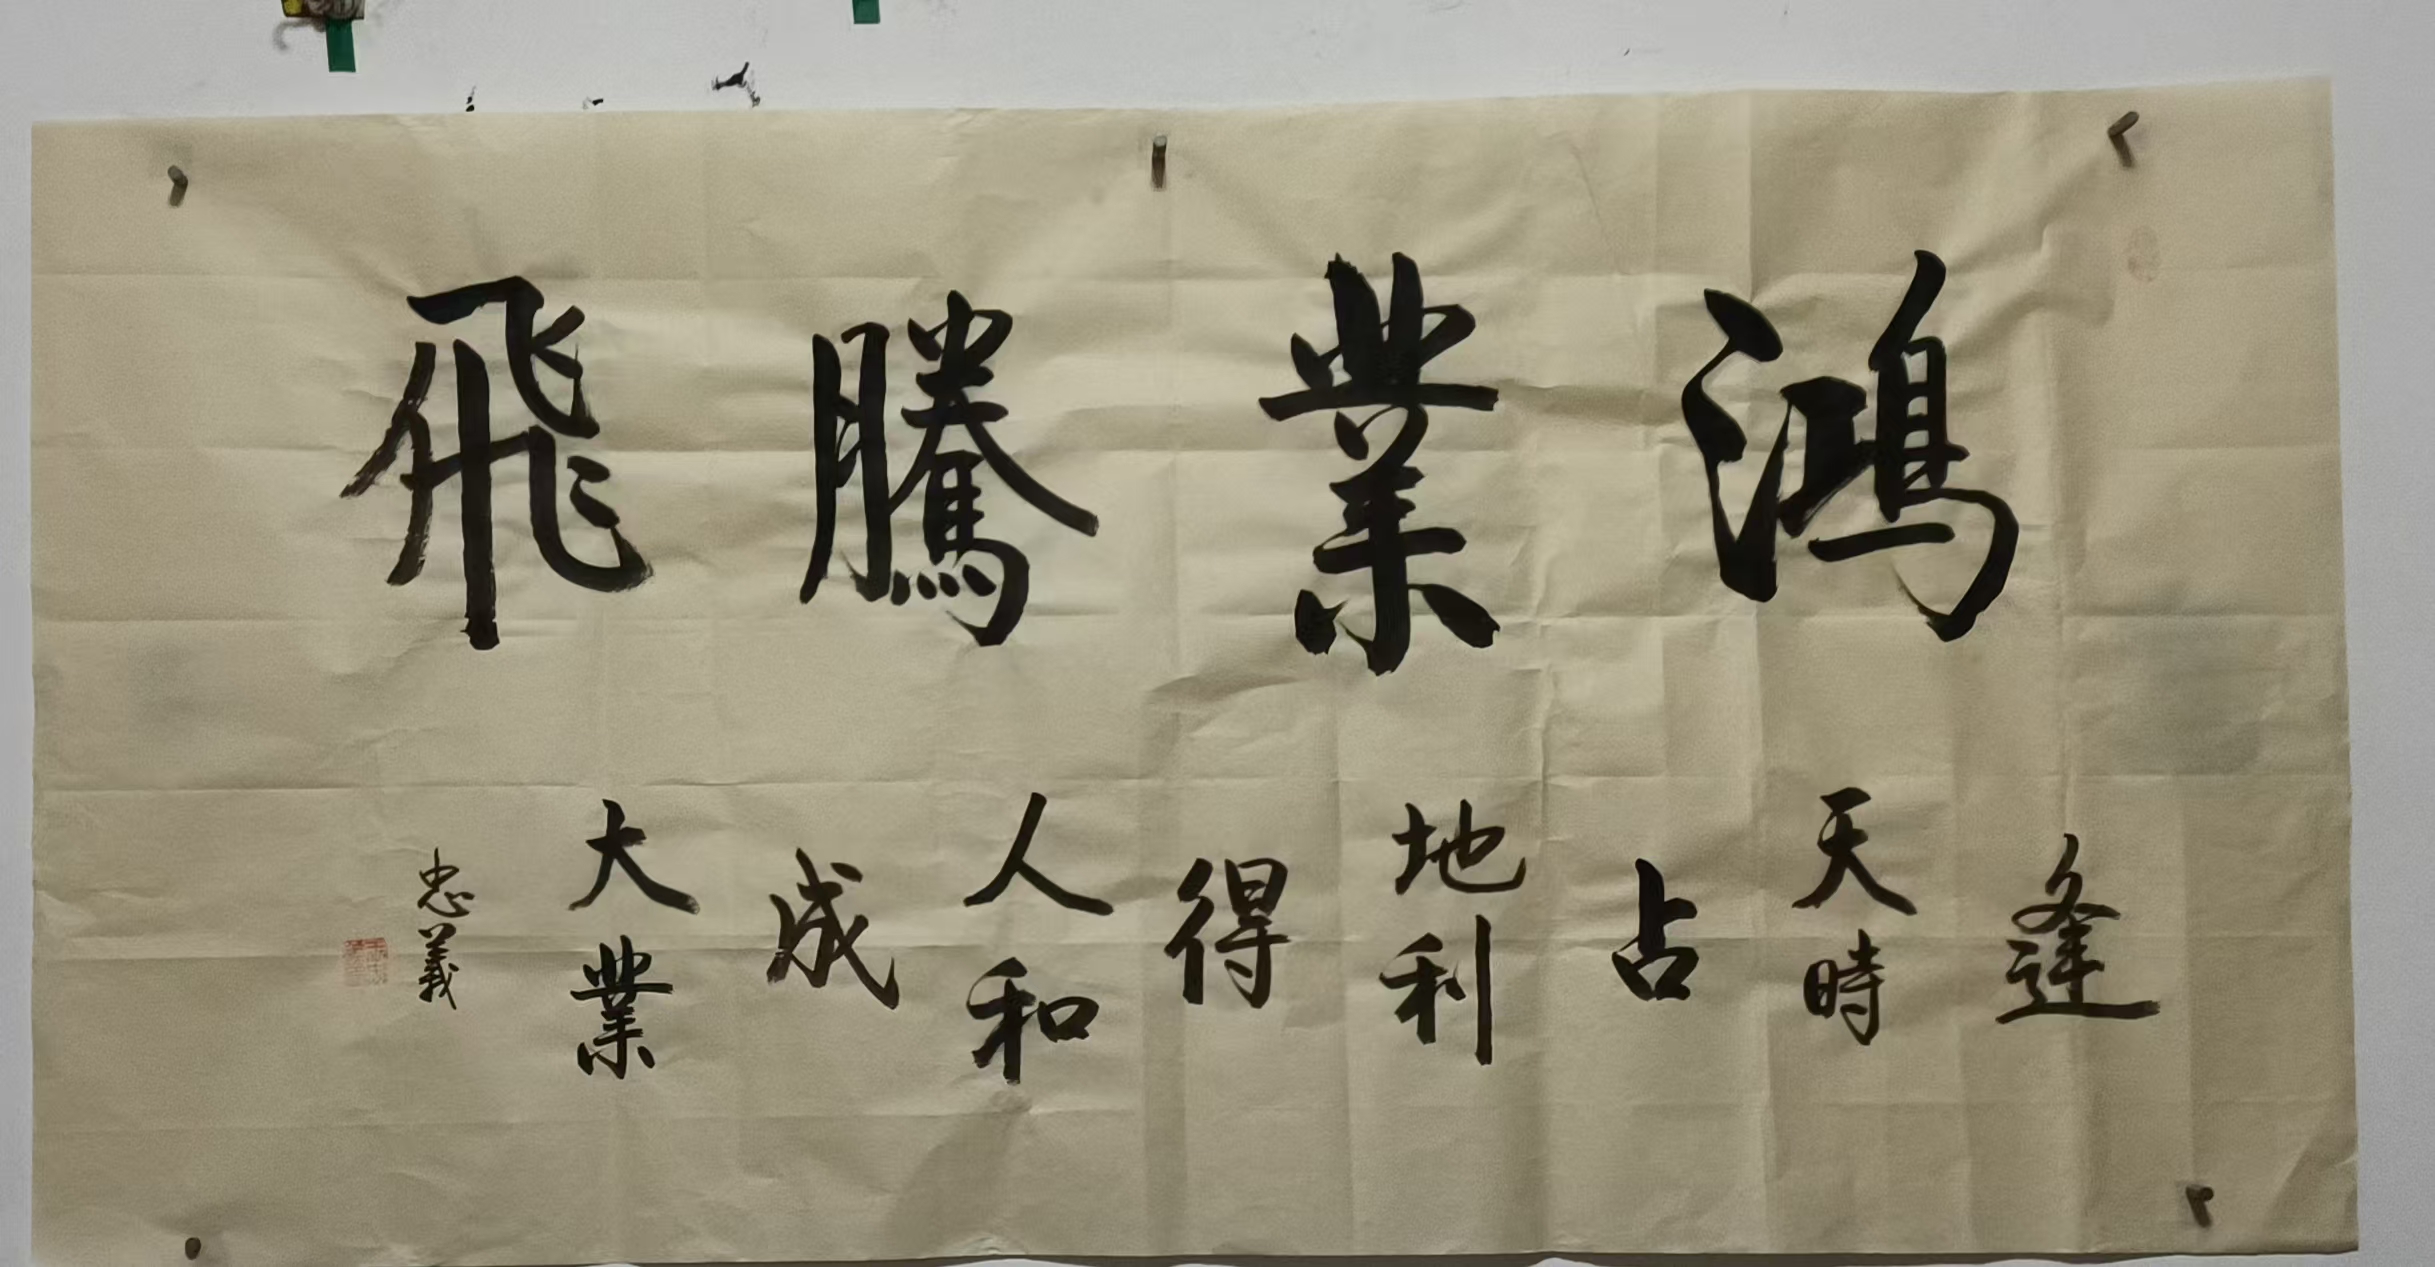 鴻業騰飛
逢
天時
占
地利
得
人和
成
大業
忠義